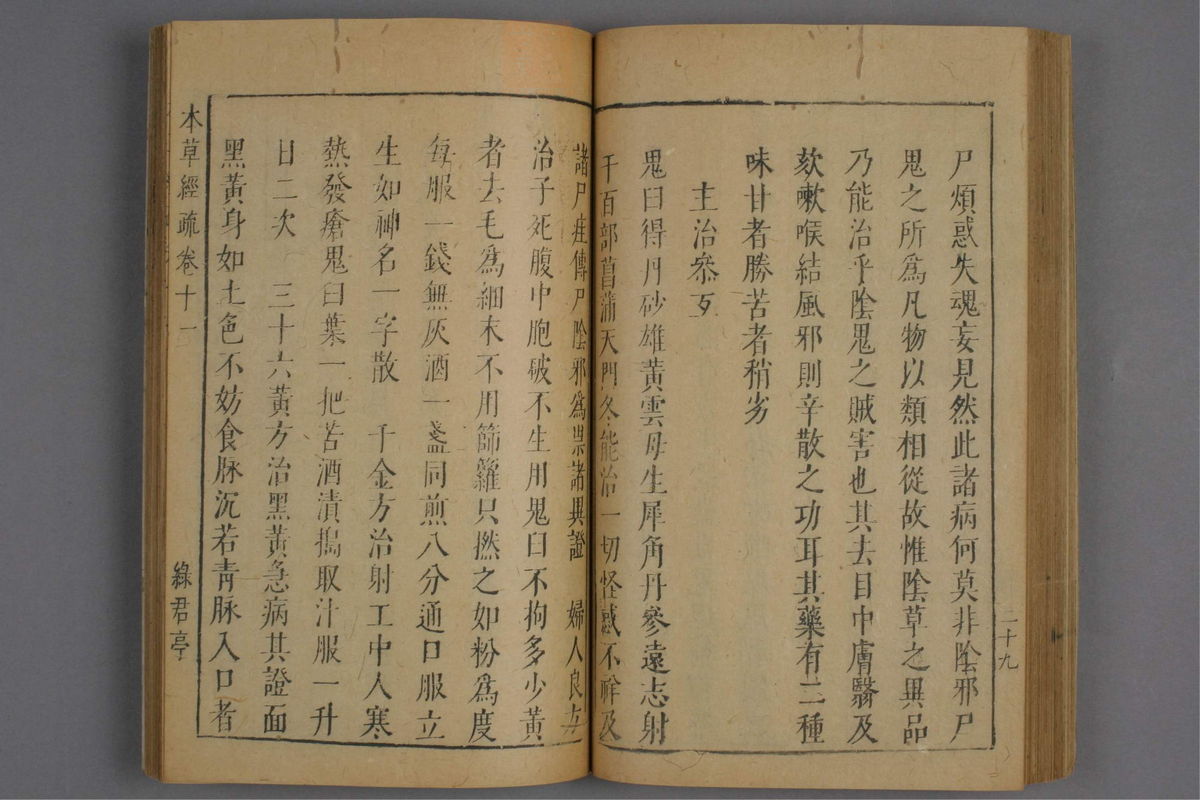 二十九
尸煩惑失魂妄見然此諸病何莫非陰邪尸
鬼之所爲凡物以類相從故惟陰草之異品
乃能治乎陰鬼之賊害也其去目中膚翳及
欬嗽喉結風邪則辛散之功耳其藥有二種
味甘者勝苦者稍劣
主治叅互
鬼臼得丹砂雄黃雲母生犀角丹參遠志射
干百部菖蒲天門冬能治一切怪惑不祥及
諸尸疰傳尸陰邪爲祟諸異證 婦人良方
治子死腹中胞破不生用鬼臼不拘多少黃
者去毛爲細末不用篩籮只撚之如粉爲度
每服一錢無灰酒一盞同煎八分通口服立
生如神名一字散 千金方治射工中人寒
熱發瘡鬼臼葉一把苦酒漬搗取汁服一升
日二次 三十六黃方治黑黃急病其證面
黑黃身如土色不妨食脉沉若靑脉入口者
本草經疏卷十一
綠君亭